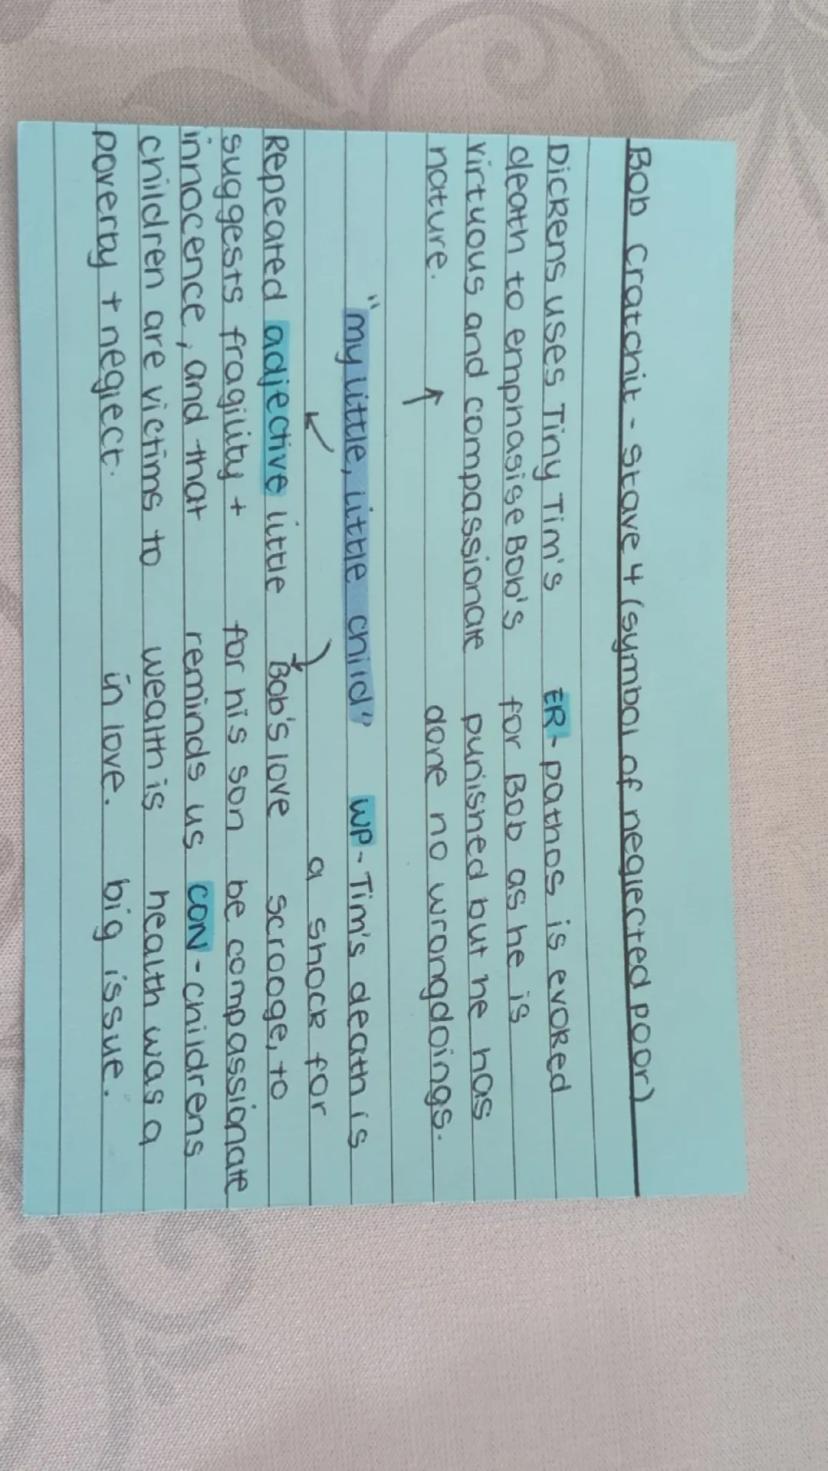 Bob Cratchit - Stave 4 (symbol of neglected poor)
Dickens uses Tiny Tim's ER - pathos is evoked
death to emphasise Bob's for Bob as he is
virtuous and compassionate punished but he has
nature. ↑ done no wrongdoings.
"my little, little child" WP - Tim's death is
a shock for
Repeated adjective little Bob's love scrooge, to
suggests fragility + for his son be compassionate
innocence, and that reminds us CON - childrens
children are victims to wealth is health was a
poverty + neglect. in love. big issue.